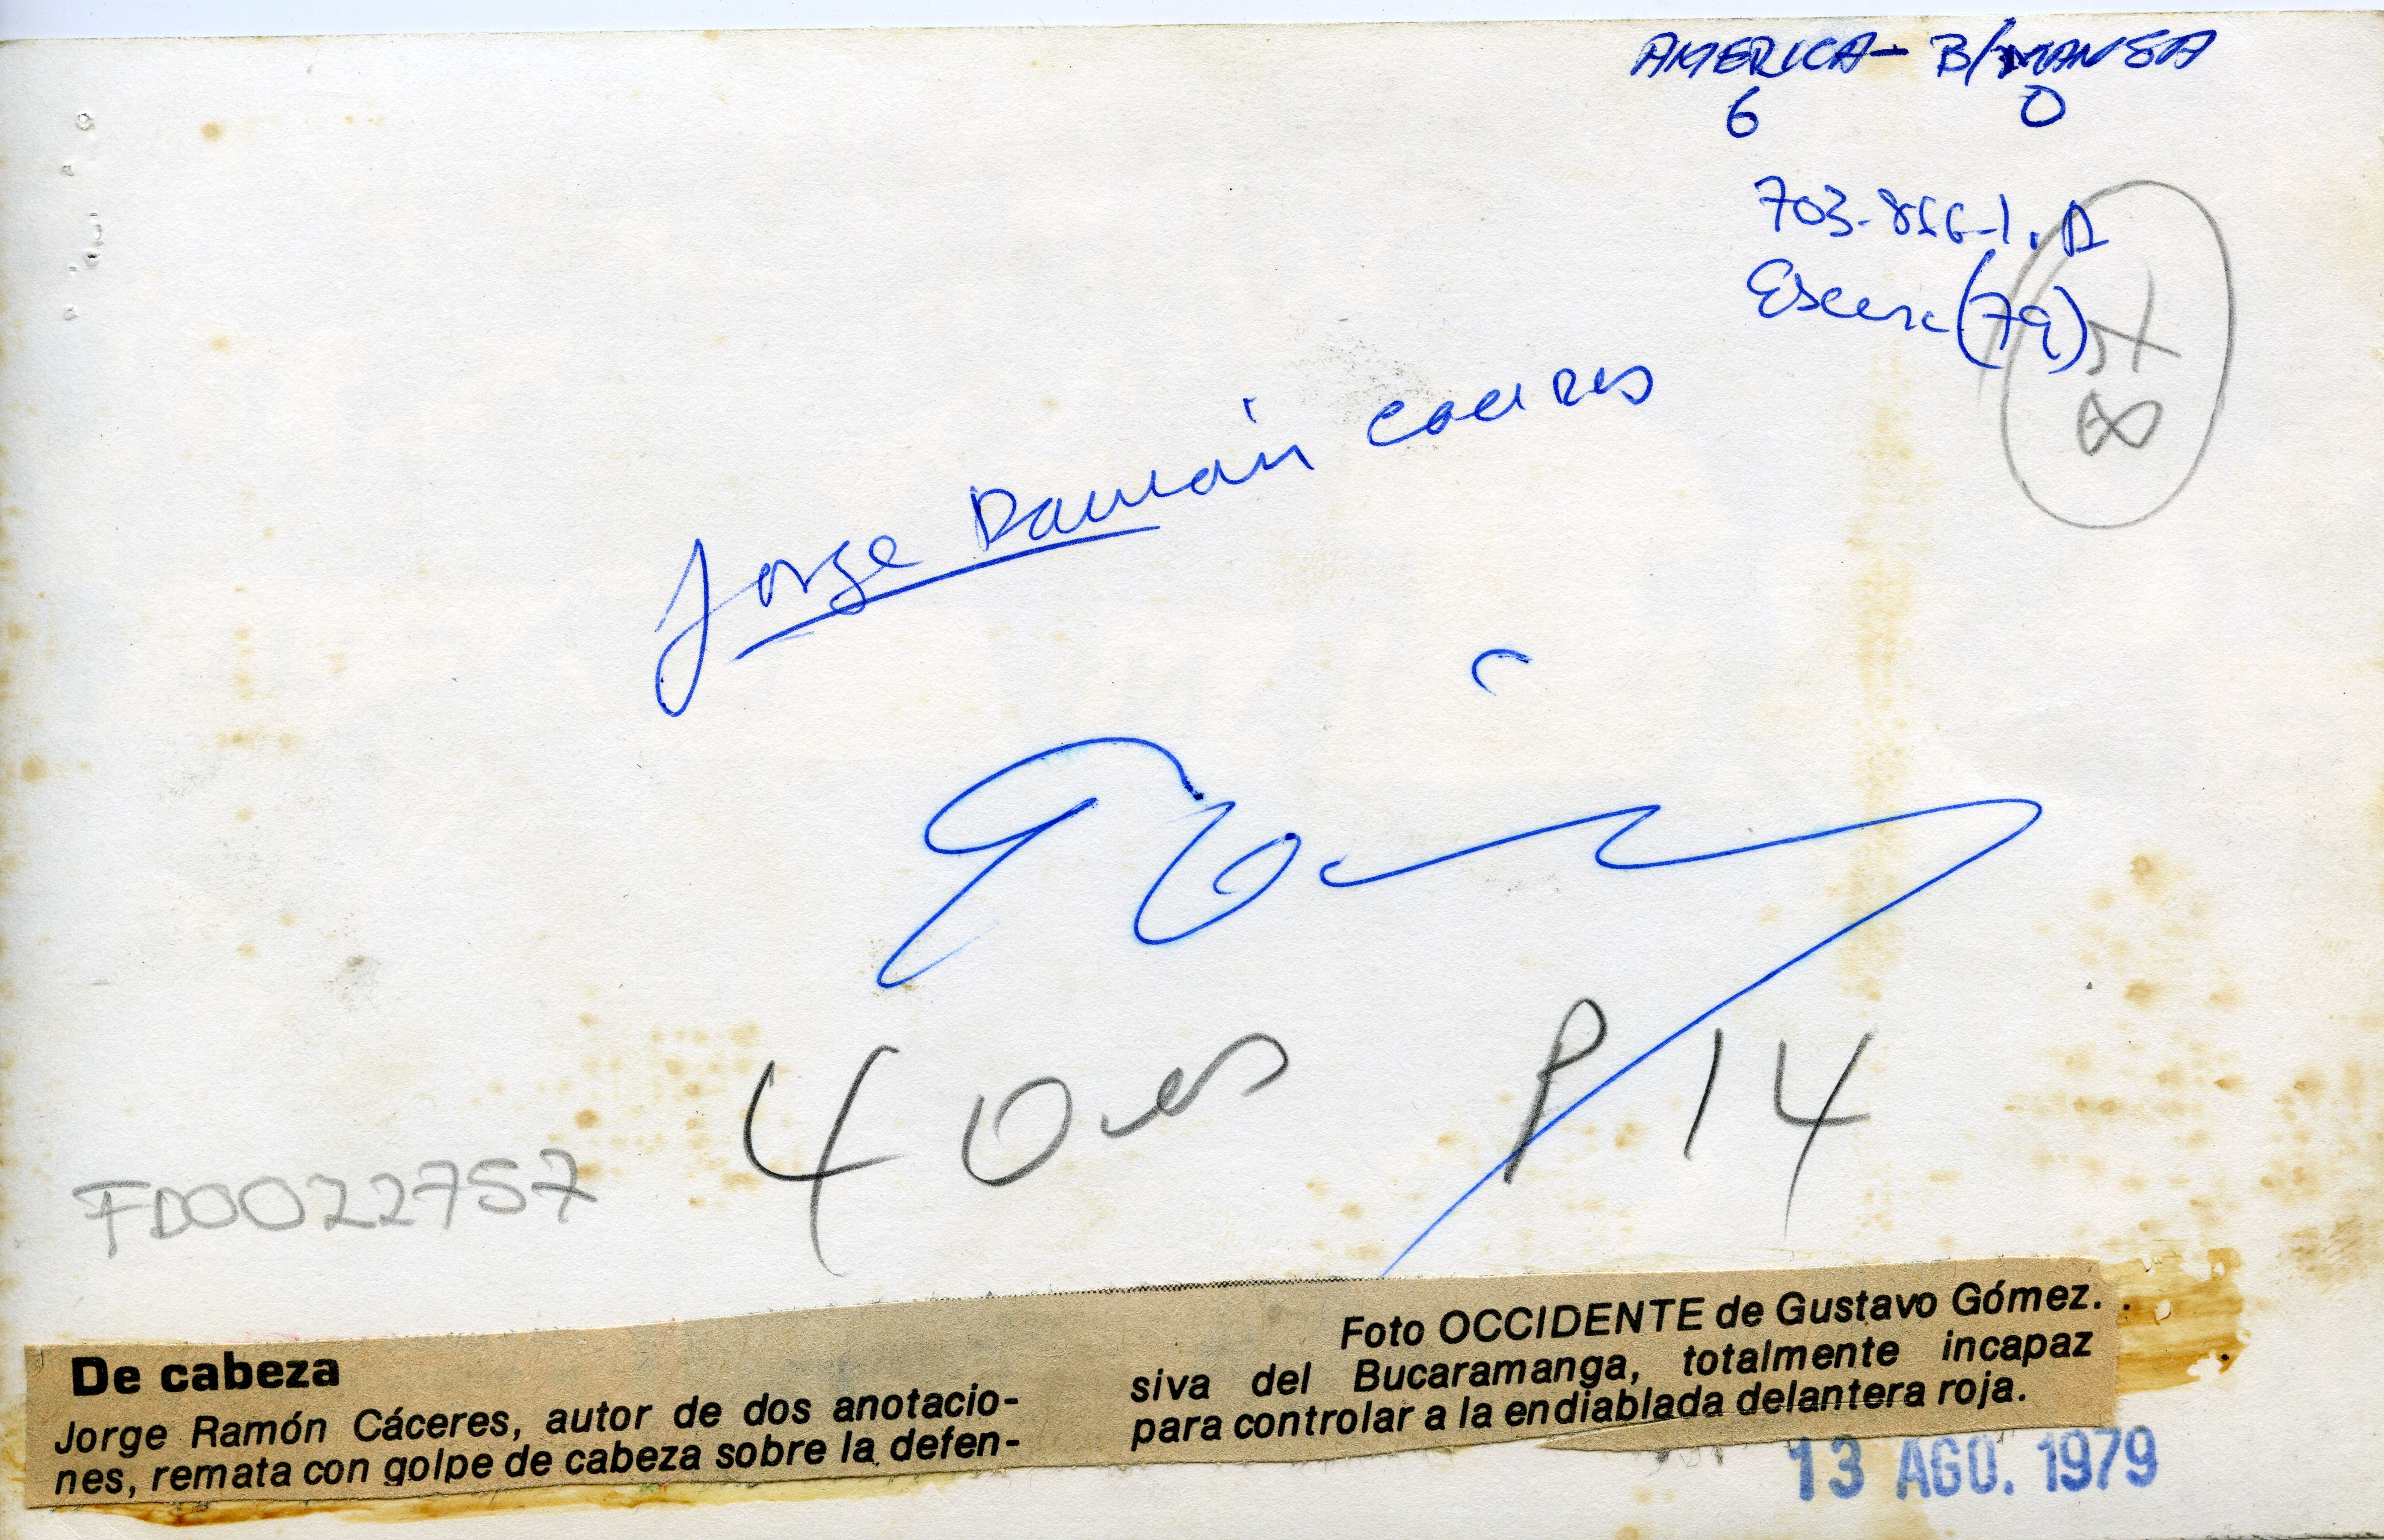 AMERICA - B/MANGA
6 0
703-856-1. A
Escena (79)
Jorge Ramón Caceres
4 P 14
FD0022757
De cabeza
Jorge Ramón Cáceres, autor de dos anotacio-
nes, remata con golpe de cabeza sobre la defen-
Foto OCCIDENTE de Gustavo Gómez.
siva del Bucaramanga, totalmente incapaz
para controlar a la endiablada delantera roja.
13 AGO. 1979